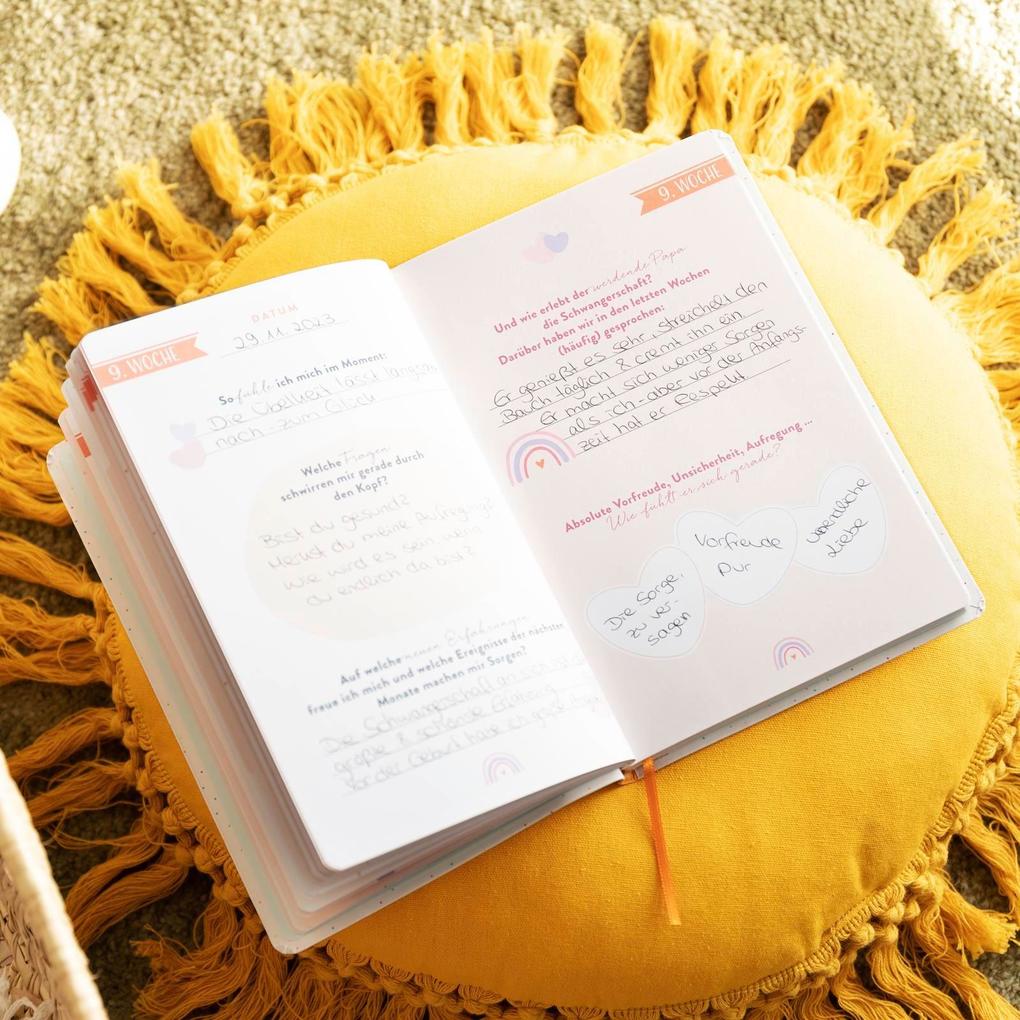 DATUM
29.11.2023
9. WOCHE
So fühle ich mich im Moment:
Die Übelkeit lässt langsam
nach - zum Glück
Welche Fragen
schwirren mir gerade durch
den Kopf?
Bist du gesund?
Merkst du meine Aufregung?
Wie wird es sein, wenn
du endlich da bist?
Auf welche neuen Erfahrungen
freue ich mich und welche Ereignisse der nächsten
Monate machen mir Sorgen?
Die Schwangerschaft an sich ist
große & schöne Erfahrung
Vor der Geburt habe ich
9. WOCHE
Und wie erlebt der werdende Papa
die Schwangerschaft?
Darüber haben wir in den letzten Wochen
(häufig) gesprochen:
Er genießt es sehr, streichelt den
Bauch täglich & cremt ihn ein
Er macht sich weniger Sorgen
als ich - aber vor der Anfangs-
zeit hat er Respekt
Absolute Vorfreude, Unsicherheit, Aufregung ...
Wie fühlt er sich gerade?
Die Sorge,
zu ver-
sagen
Vorfreude
Pur
unendliche
Liebe